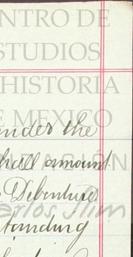 NTRO DE
STUDIOS
HISTORIA
E MEXICO
under the
half amount
Debenture
Carlos Slim
standing